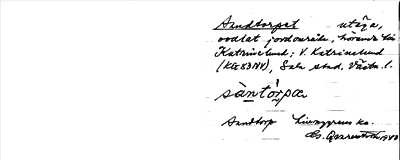 Sandtorpet utäga,
odlat jordområde, hörande till
Katrinelund; V. Katrinelund
(Kts 83 NV), Sala stad. Västm. l.
sàntórpa
Sandtorp Ljunggrens ka.